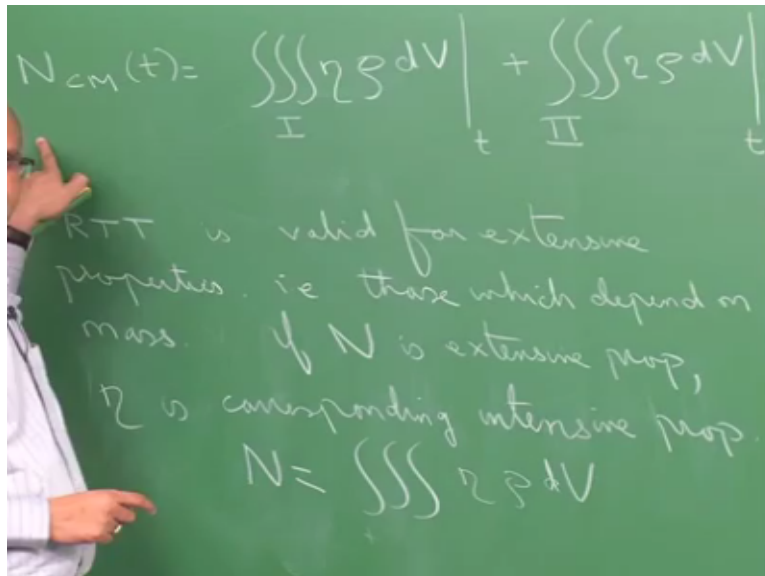 N_CM(t) = ∭_I ηρ dV|_t + ∭_II ηρ dV|_t
RTT is valid for extensive
properties. ie those which depend on
mass. If N is extensive prop,
η is corresponding intensive prop.
N = ∭ ηρ dV